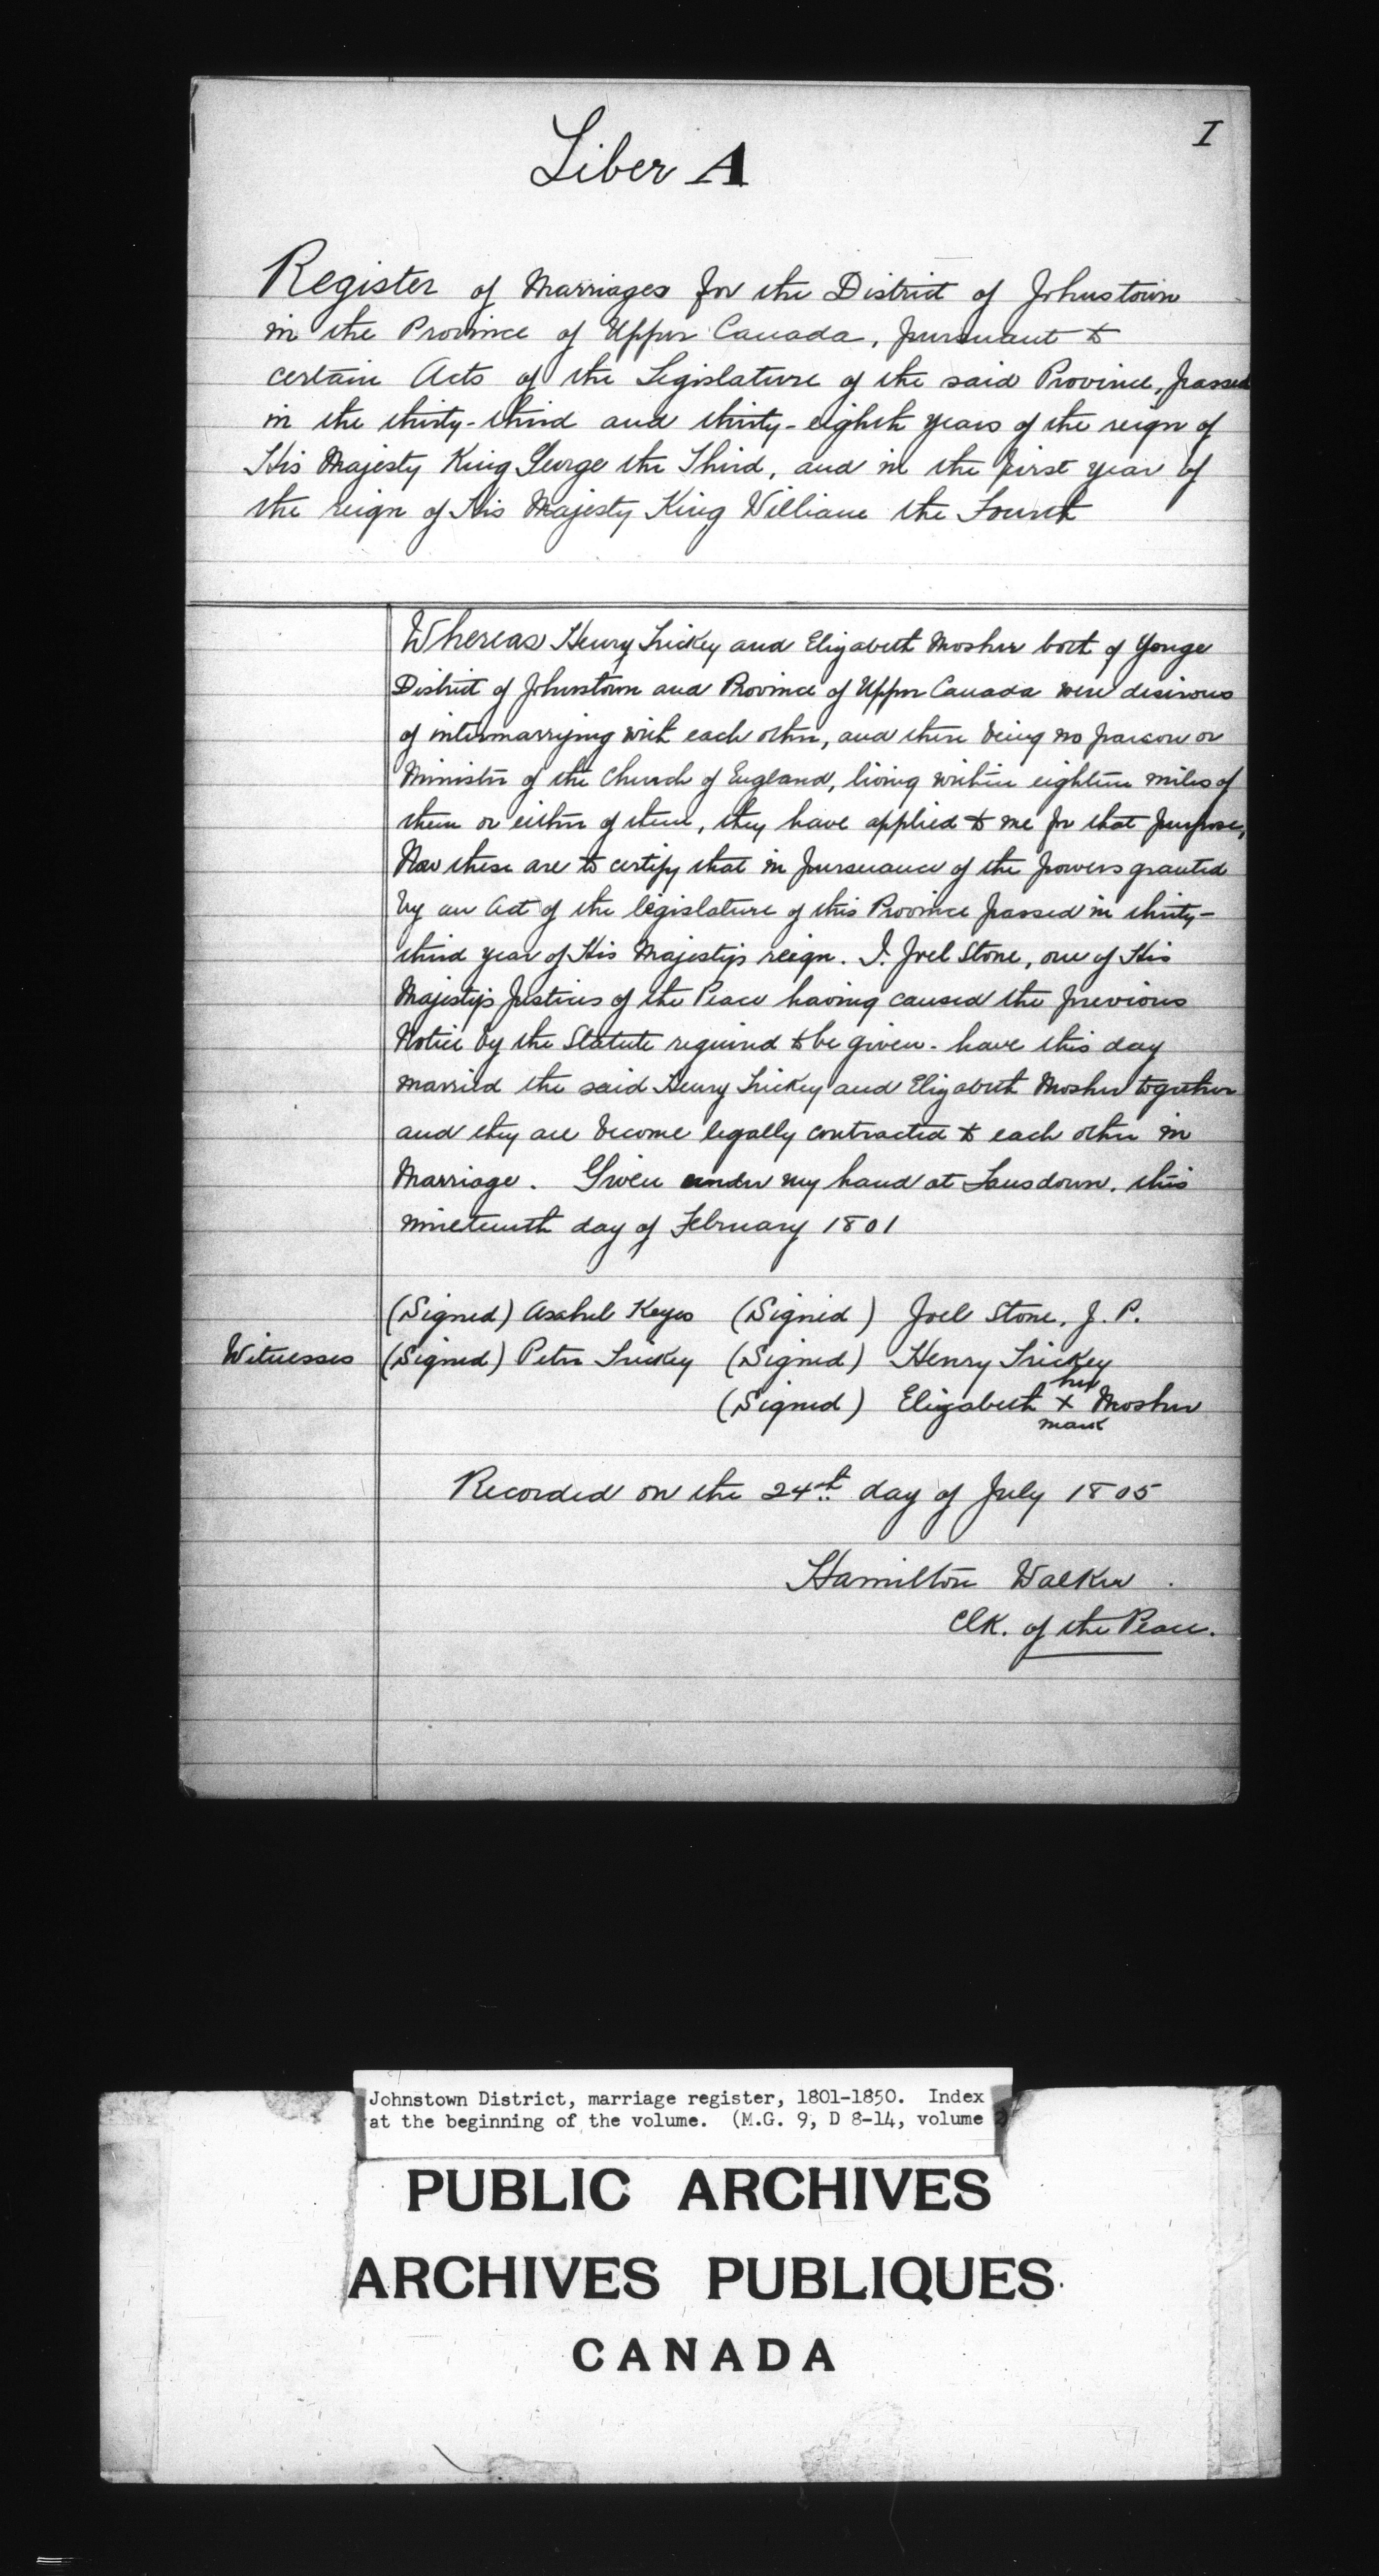 I
Liber A
Register of Marriages for the District of Johnstown
in the Province of Upper Canada, pursuant to
certain Acts of the Legislature of the said Province, passed
in the thirty-third and thirty-eighth years of the reign of
His Majesty King George the Third, and in the first year of
the reign of His Majesty King William the Fourth
Whereas Henry Trickey and Elizabeth Mosher both of Yonge
District of Johnstown and Province of Upper Canada were desirous
of intermarrying with each other, and there being no parson or
Minister of the Church of England, living within eighteen miles of
them or either of them, they have applied to me for that purpose,
Now these are to certify that in pursuance of the powers granted
by an Act of the legislature of this Province passed in thirty-
third year of His Majesty's reign. I. Joel Stone, one of His
Majesty's Justices of the Peace having caused the previous
Notice by the Statute required to be given. have this day
married the said Henry Trickey and Elizabeth Mosher together
and they are become legally contracted to each other in
Marriage. Given under my hand at Lansdown. this
nineteenth day of February 1801
(Signed) Asahel Keyes (Signed) Joel Stone, J. P.
Witnesses (Signed) Peter Trickey (Signed) Henry Trickey
her
(Signed) Elizabeth X Mosher
mark
Recorded on the 24th day of July 1805
Hamilton Walker.
Clk. of the Peace.
Johnstown District, marriage register, 1801-1850. Index
at the beginning of the volume. (M.G. 9, D 8-14, volume 2
PUBLIC ARCHIVES
ARCHIVES PUBLIQUES
CANADA